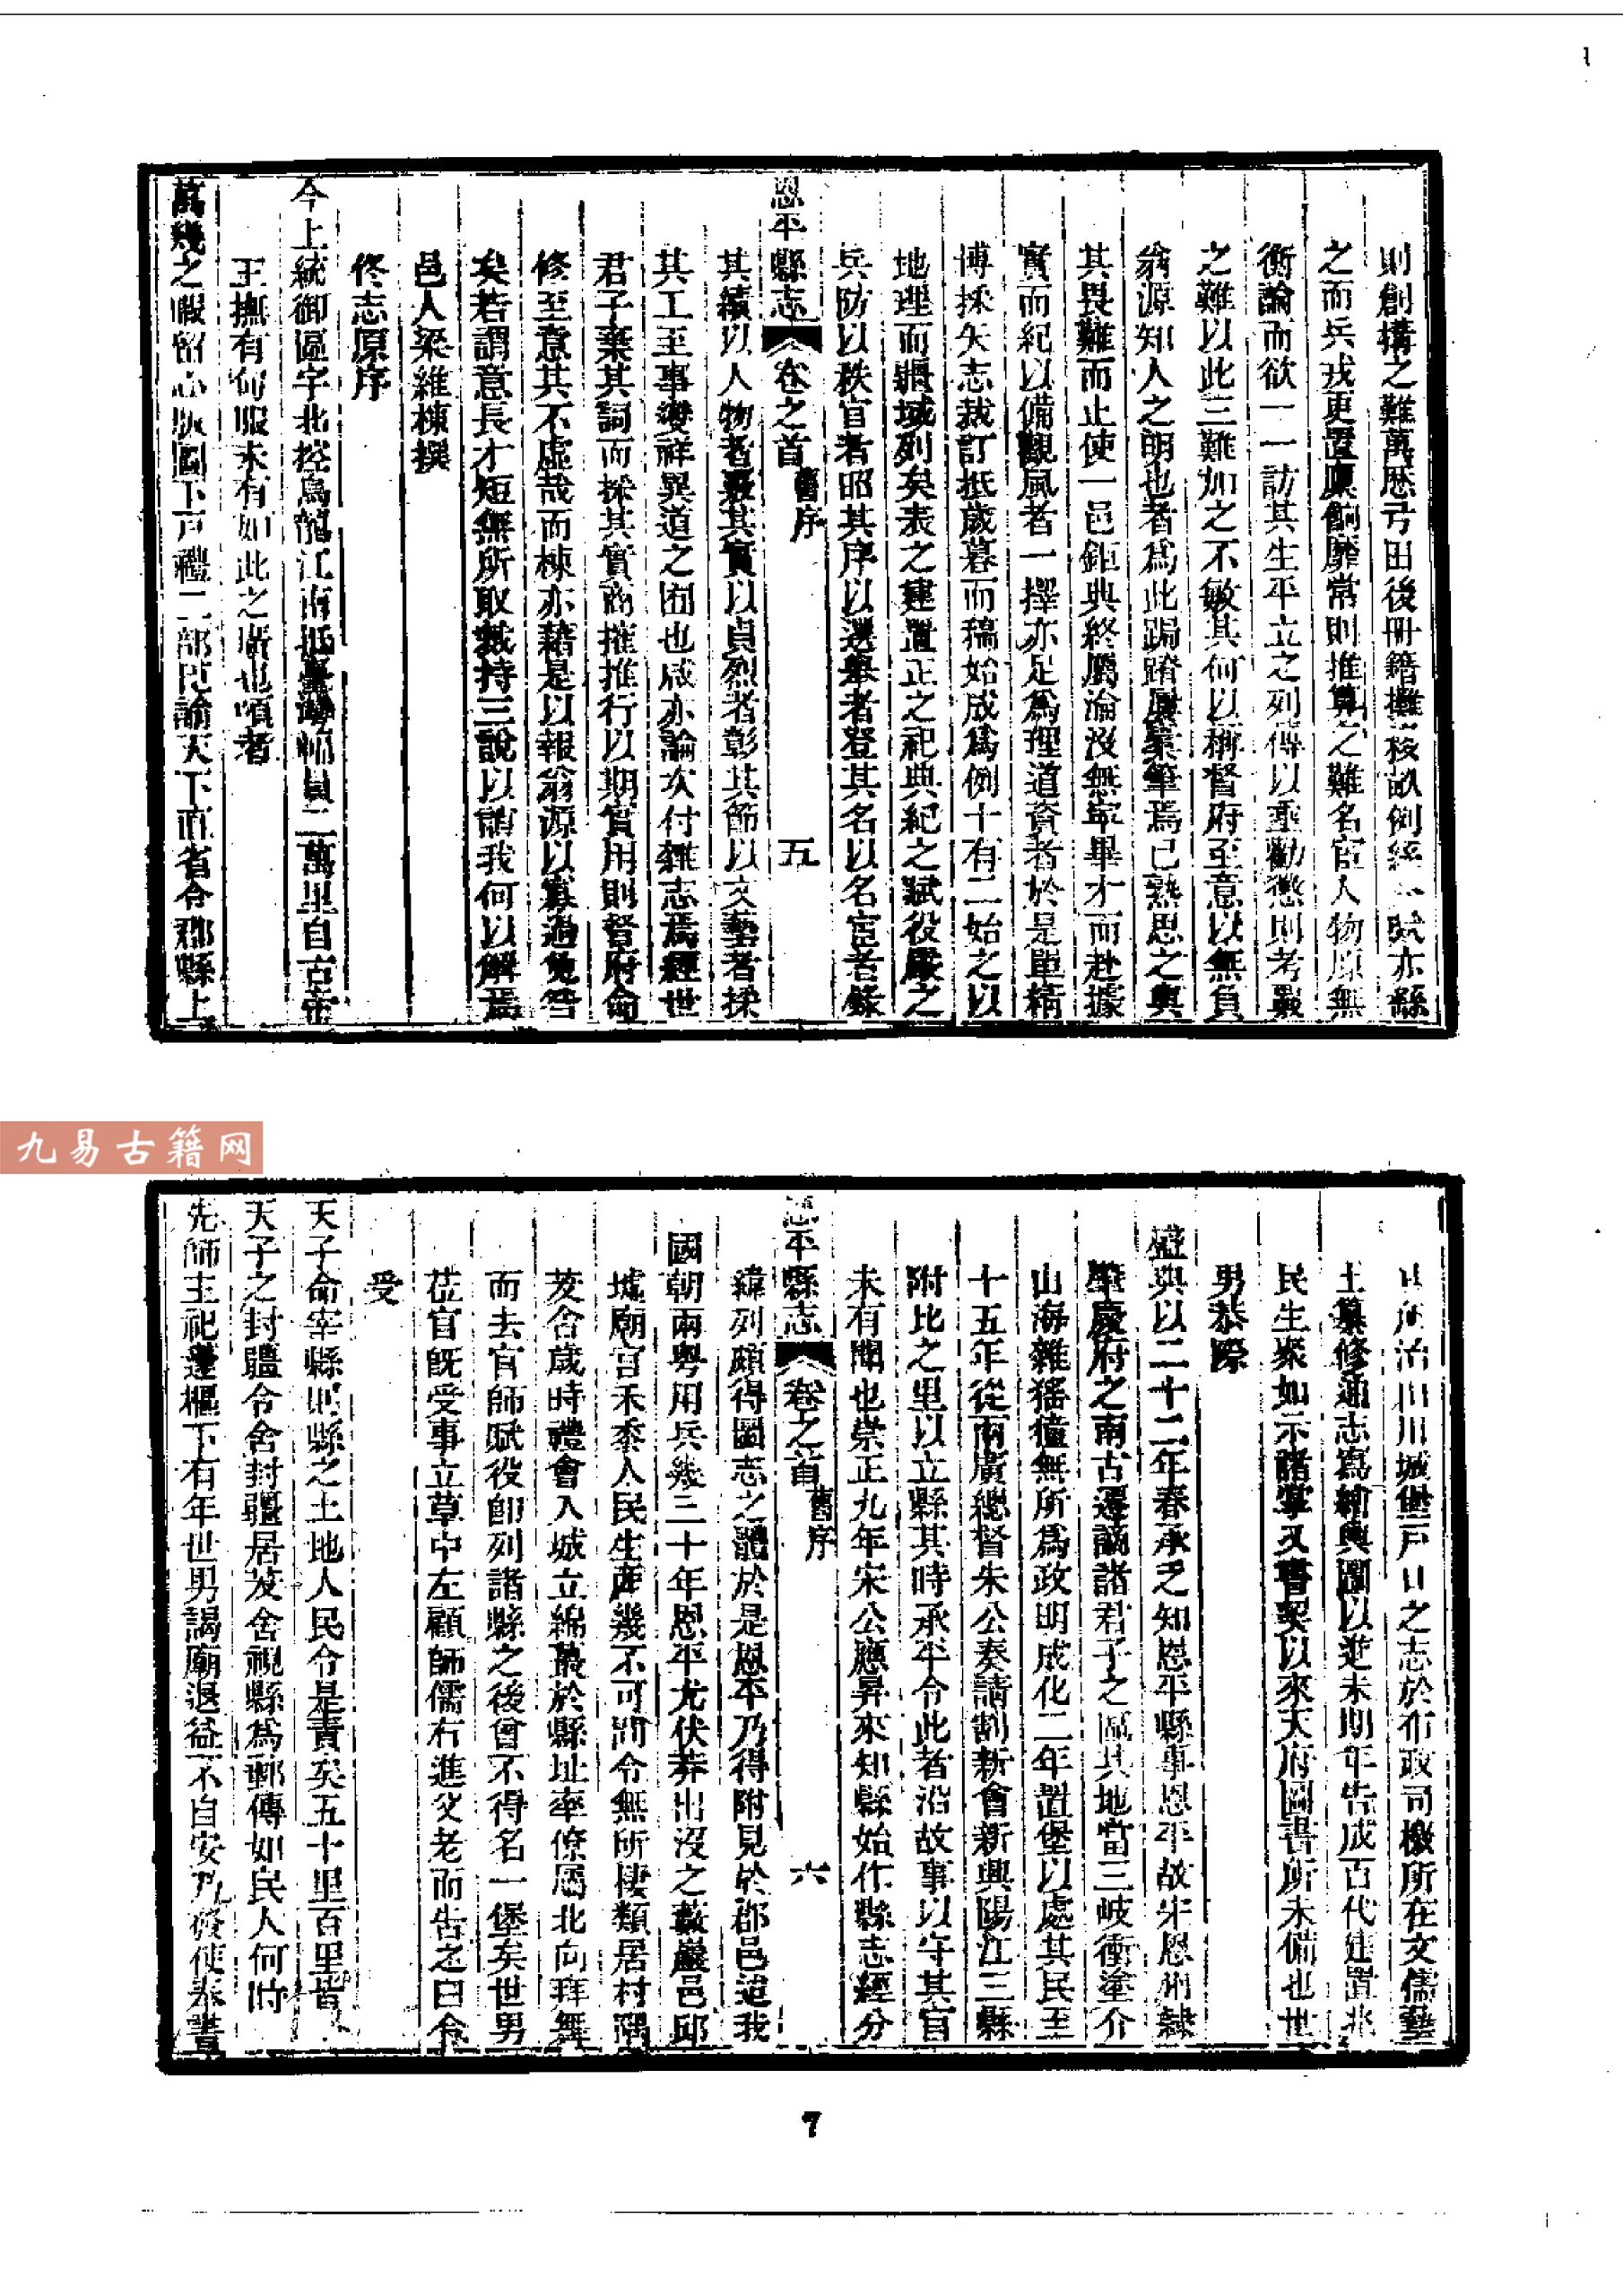 則創構之難萬歷弓田後冊籍攤核畝例經賦亦繇
之而兵戎更置廩餉靡常則推算之難名宦人物原無
衡論而欲一一訪其生平立之列傳以埀勸懲則考覈
之難以此三難加之不敏其何以稱督府至意以無負
翁源知人之明也者爲此跼蹐屢槖筆焉已熟思之與
其畏難而止使一邑鉅典終屬淪沒無寧畢才而赴據
實而紀以備觀風者一擇亦足爲理道資者於是單精
博採矢志裁訂抵歲暮而稿始成爲例十有二始之以
地理而疆域列矣表之建置正之祀典紀之賦役嚴之
兵防以秩官者昭其序以選舉者登其名以名宦者錄
恩平縣志 卷之首 舊序 五
其績以人物者覈其實以貞烈者彰其節以文藝者採
其工至事變祥異道之囿也咸亦論次付雜志焉經世
君子棄其詞而採其實商摧推行以期實用則督府命
修至意其不虛哉而棟亦藉是以報翁源以寡過免咎
矣若謂意長才短無所取裁持三說以誚我何以解焉
邑人梁維棟撰
修志原序
今上統御區宇北控烏龍江南抵臺灣幅員二萬里自古帝
王撫有甸服未有如此之廣也頃者
萬幾之暇留心版圖下戸禮二部臣諭天下直省令郡縣上
山河治川城堡戸口之志於布政司檄所在文儒藝
士纂修通志爲繪輿圖以進未期年告成百代建置兆
民生聚如示諸掌又書契以來天府圖書所未備也世
男恭際
盛典以二十二年春承乏知恩平縣事恩平故宋恩州隸
肇慶府之南古遷謫諸君子之區其地當三岐衝塗介
山海雜猺獞無所爲政明成化二年置堡以處其民至
十五年從兩廣總督朱公奏請割新會新興陽江三縣
附比之里以立縣其時承平令此者沿故事以守其官
未有聞也崇正九年宋公應昇來知縣始作縣志經分
恩平縣志 卷之首 舊序 六
緯列頗得圖志之體於是恩平乃得附見於郡邑迨我
國朝兩粤用兵幾三十年恩平尤伏莽出沒之藪巖邑邱
墟廟宫禾黍人民生產幾不可問令無所棲類居村隅
茇舍歲時禮會入城立綿蕞於縣址率僚屬北向拜舞
而去官師賦役卽列諸縣之後曾不得名一堡矣世男
莅官旣受事立草中左顧師儒右進父老而告之曰令
受
天子命宰縣則縣之土地人民令是責矣五十里百里皆
天子之封疆令舍封疆居茇舍視縣爲郵傳如民人何時
先師主祀蓬樞下有年世男謁廟退益不自安乃發使奉書
7
九易古籍网